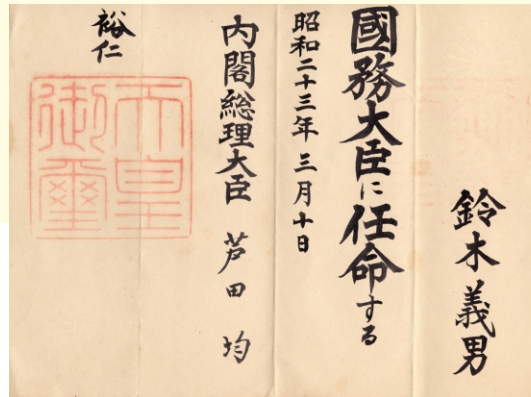 鈴木義男
國務大臣に任命する
昭和二十三年三月十日
内閣総理大臣 芦田 均
裕仁
天皇御璽